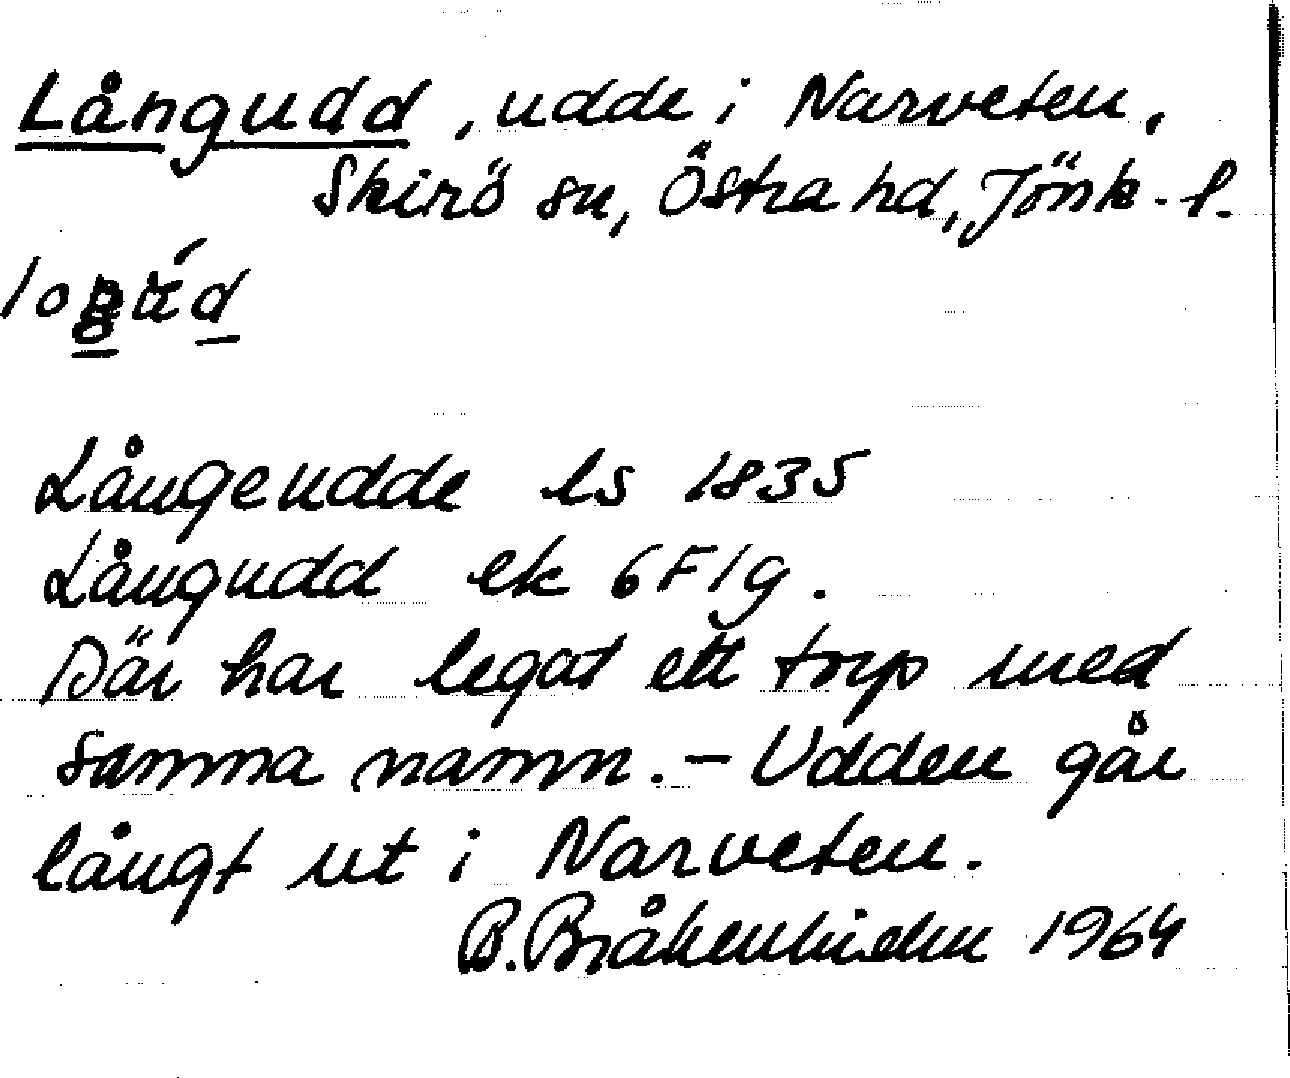 Långudd, udde i Narveten,
Skirö sn, Östra hd, Jönk. l.
Långeudde ls 1835
Långudd ek 6F1g.
Där har legat ett torp med
samma namn. – Udden går
långt ut i Narveten.
B. Bråkenhielm 1964